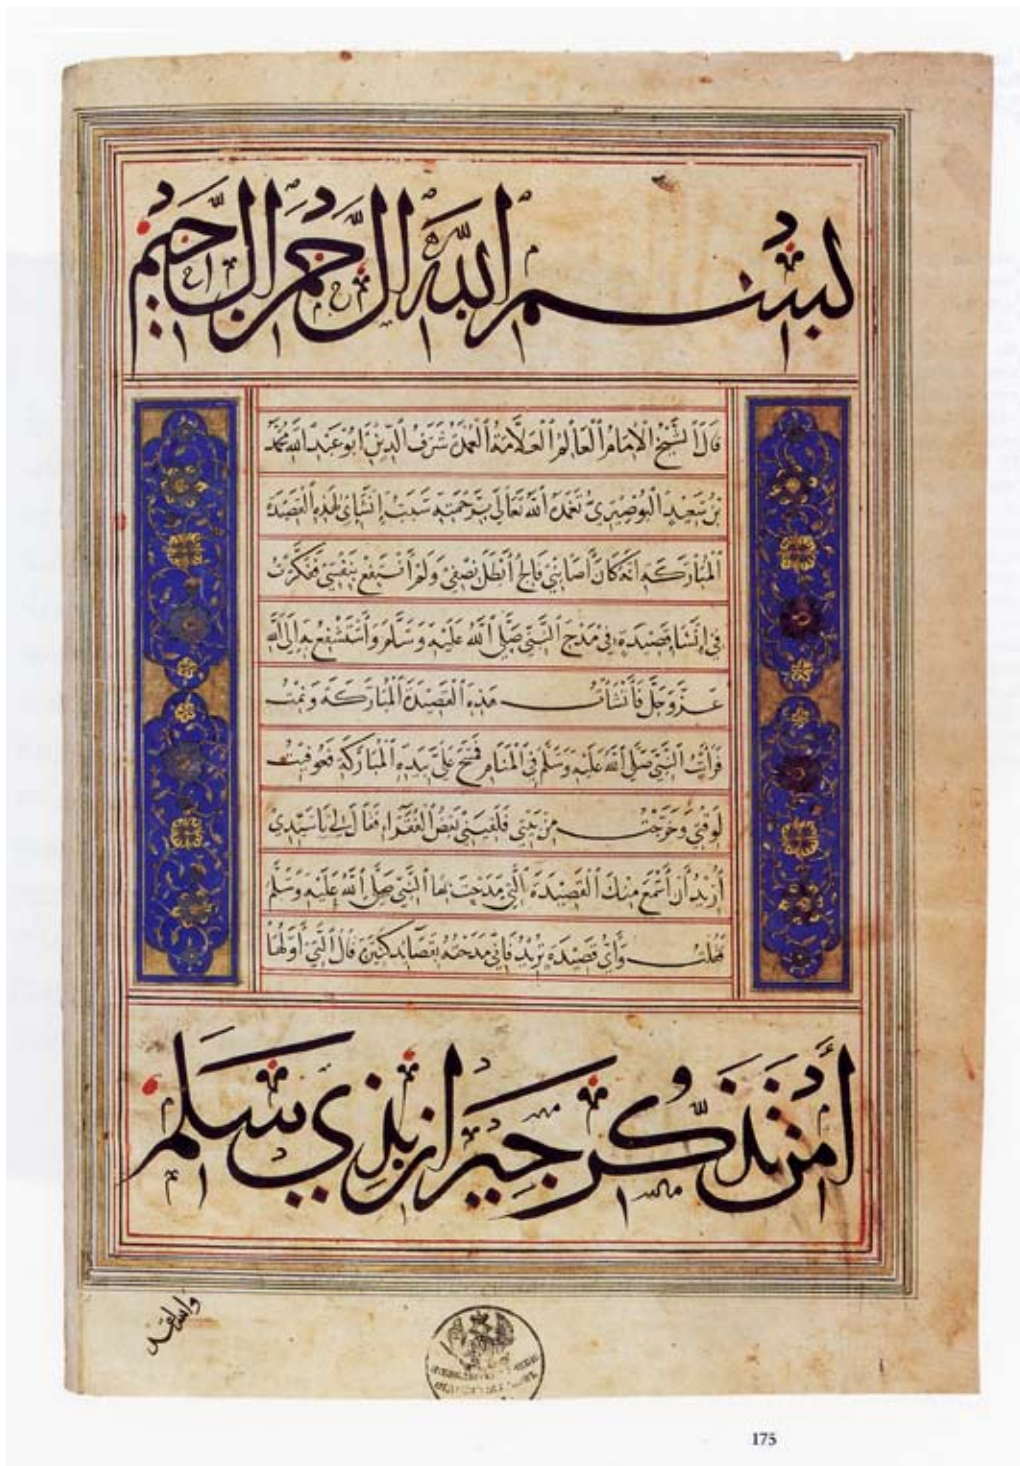 بسم الله الرحمن الرحيم
قال الشيخ الإمام العالم العلامة العمدة شرف الدين ابو عبد الله محمد
بن سعيد البوصيري تغمده الله تعالى برحمته سبب إنشائي لهذه القصيدة
المباركة انه كان أصابني فالج أبطل نصفي ولم أنتفع بنفسي ففكرت
في إنشاء قصيدة في مدح النبي صلى الله عليه وسلم وأستشفع بها إلى الله
عز وجل فأنشأت هذه القصيدة المباركة ونمت
فرأيت النبي صلى الله عليه وسلم في المنام فمسح علي بيده المباركة فعوفيت
لوقتي وخرجت من بيتي فلقيني بعض الفقراء فقال لي يا سيدي
أريد أن أسمع منك القصيدة التي مدحت بها النبي صلى الله عليه وسلم
فقلت وأي قصيدة تريد فاني مدحته بقصائد كثيرة قال التي أولها
أمن تذكر جيران بذي سلم
175